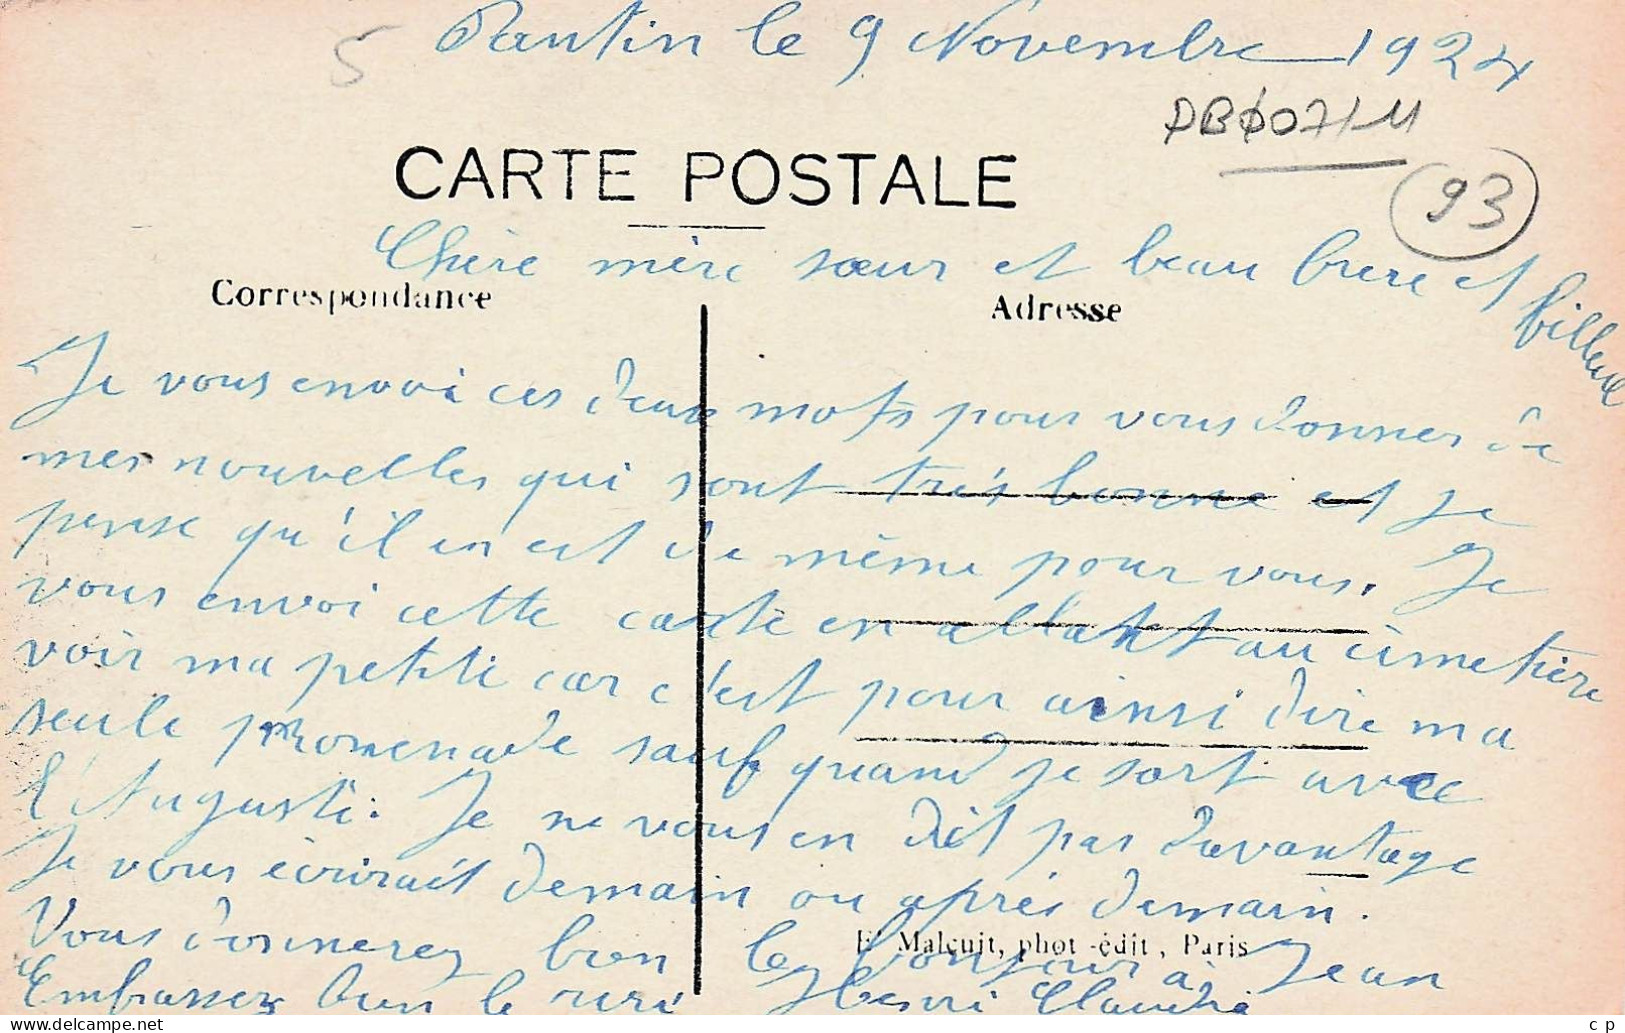 5
Pantin le 9 Novembre 1924
DB0071M
CARTE POSTALE
93
Chère mère sœur et beau frere et filleul
Correspondance
Adresse
Je vous envoi ces deux mots pour vous donner de
mes nouvelles qui sont très bonne et je
pense qu'il en est de même pour vous. Je
vous envoi cette carte en allant au cimetière
voir ma petite car c'est pour ainsi dire ma
seule promenade sauf quand je sort avec
l'Auguste. Je ne vous en dit pas davantage
Je vous écrirait demain ou après demain.
Vous donnerez bien le bonjour à Jean
E. Malcuit, phot-édit, Paris
Embrassez bien le Henri Claudie
c p